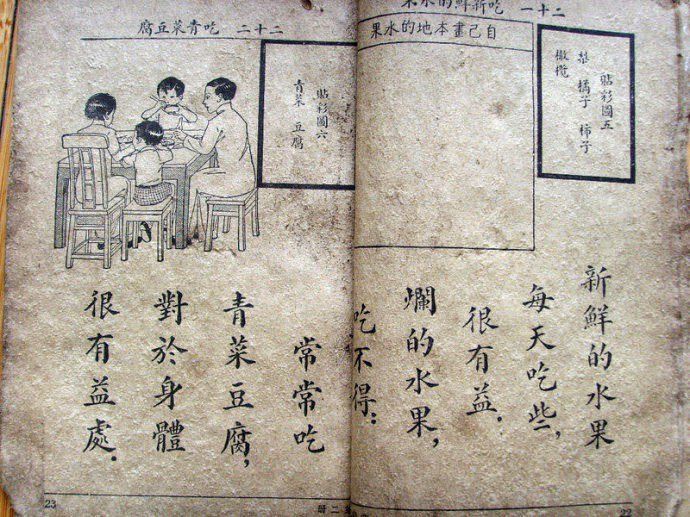 二十一 吃新鮮的水果
貼彩圖五
梨 橘子 柿子
橄欖
自己畫本地的水果
新鮮的水果
每天吃些，
很有益．
爛的水果，
吃不得：
22
二十二 吃青菜豆腐
貼彩圖六
青菜 豆腐
常常吃
青菜豆腐，
對於身體
很有益處．
二冊
23